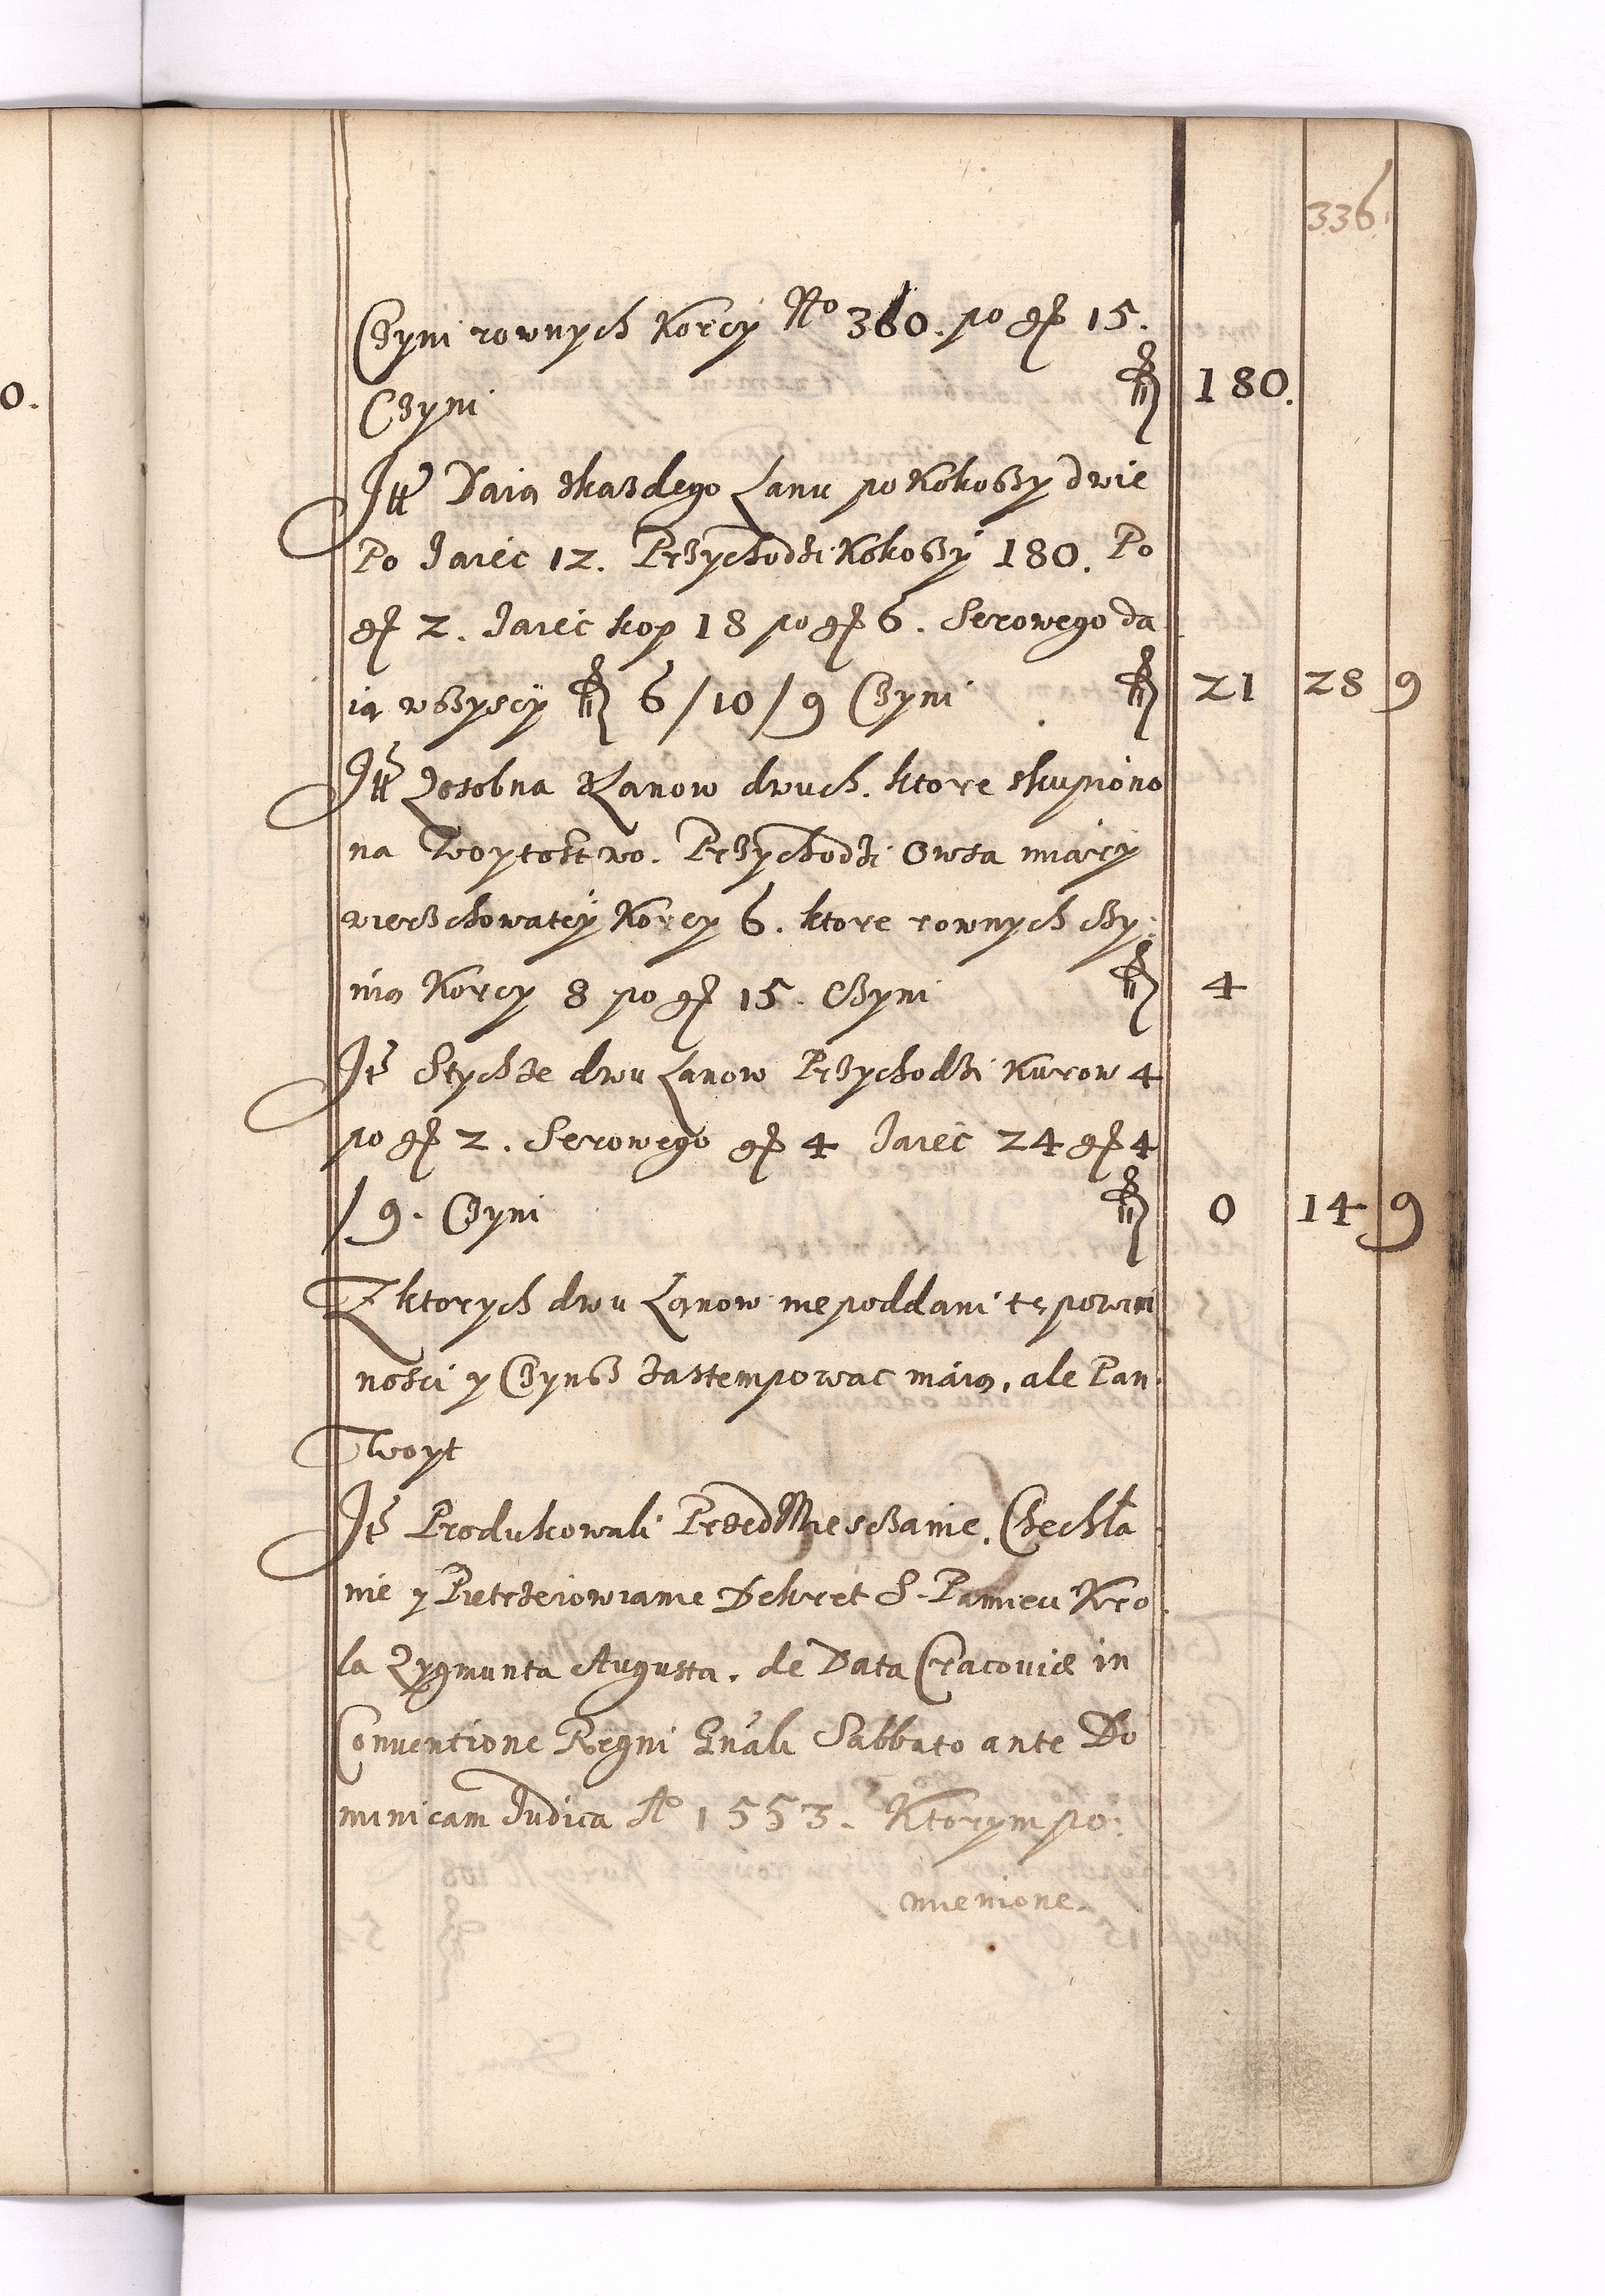 336.
0.
Czyni rownych Korcy No 360. po gr 15.
Czyni fl 180.
Itt Daią zkazdego Łanu po Kokoszy dwie
Po Jaiec 12. Przychodzi Kokoszy 180. Po
gr 2. Jaiec kop 18 po gr 6. Serowego da
ią wszyscy fl 6/10/9 Czyni fl 21 28 9
Itt Zosobna Złanow dwuch. ktore skupiono
na Woytostwo. Przychodzi Owsa miary
wierzchowatey Korcy 6. ktore rownych czy:
nią Korcy 8 po gr 15. Czyni fl 4
It Stychze dwu Łanow Przychodzi Kurow 4
po gr 2. Serowego gr 4 Jaiec 24 gr 4
/9. Czyni fl 0 14 9
Z ktorych dwu Łanow nie poddani te powin
nosci y Czynsz zastempowac maią, ale Pan
Woyt
It Produkowali PrzedMiesczanie. Czechla
nie y Pietrzeiowianie Dekret S. Pamieci Kro
la Zygmunta Augusta. de Data Cracoviæ in
Conventione Regni Gnali Sabbato ante Do
minicam Judica Ao 1553. Ktorym po:
mienione.